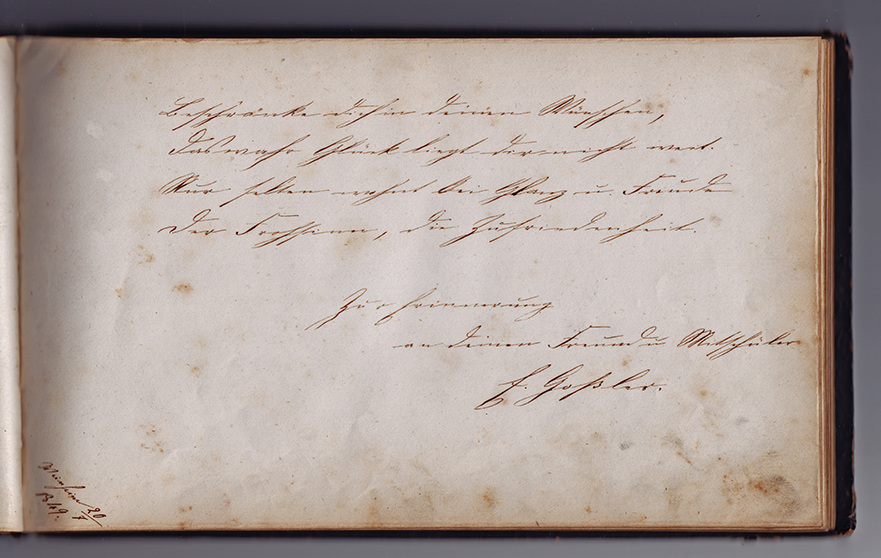 Beschränke dich in deinen Wünschen,
Das wahr Glück liegt dir nicht weit.
Nur selten wohnt bei Glanz u. Freude
Der Frohsinn, die Zufriedenheit.
Zur Erinnerung
an deinen Freund u Mitschüler
E. Goßler.